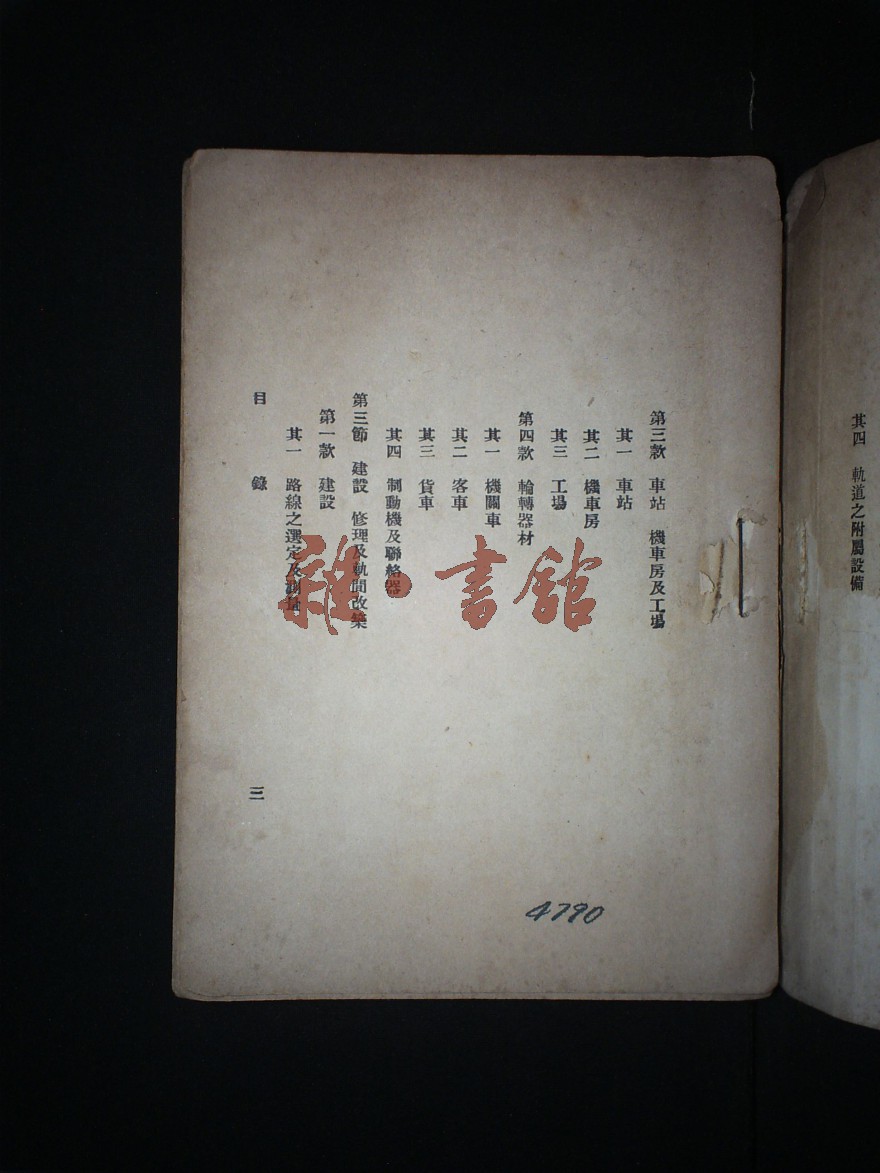 其四　軌道之附屬設備
第三款　車站　機車房及工場
其一　車站
其二　機車房
其三　工場
第四款　輪轉器材
其一　機關車
其二　客車
其三　貨車
其四　制動機及聯絡器
第三節　建設　修理及軌間改築
第一款　建設
其一　路線之選定及測量
目　錄
三
4790
雜·書館